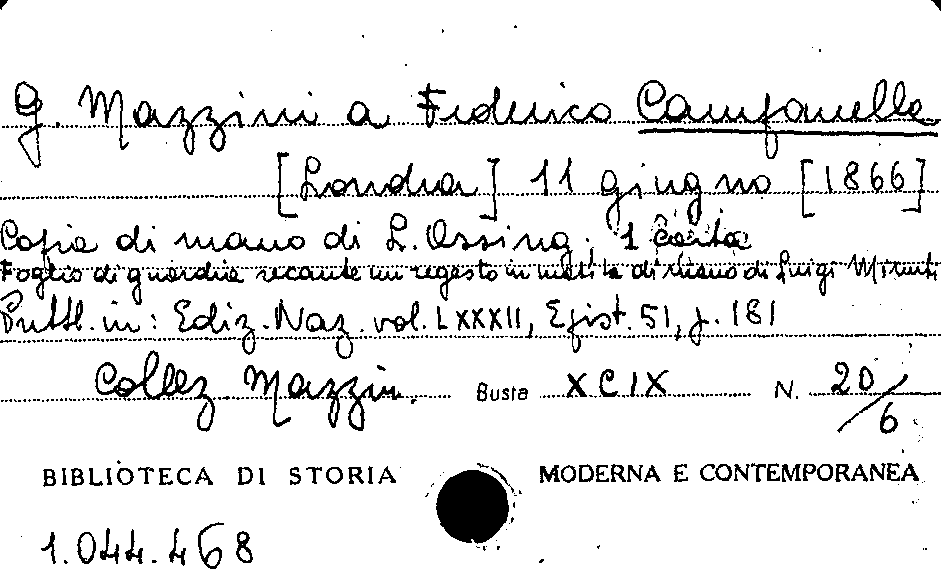 G. Mazzini a Federico Campanella
[Londra] 11 giugno [1866]
Copia di mano di L. Ossing. 1 carta
Foglio di guardia recante un regesto in matita di mano di Luigi Minuti
Pubbl. in: Ediz. Naz. vol. LXXXII, Epist. 51, p. 181
Collez Mazzin. Busta XCIX N. 20/6
BIBLIOTECA DI STORIA MODERNA E CONTEMPORANEA
1.044.468